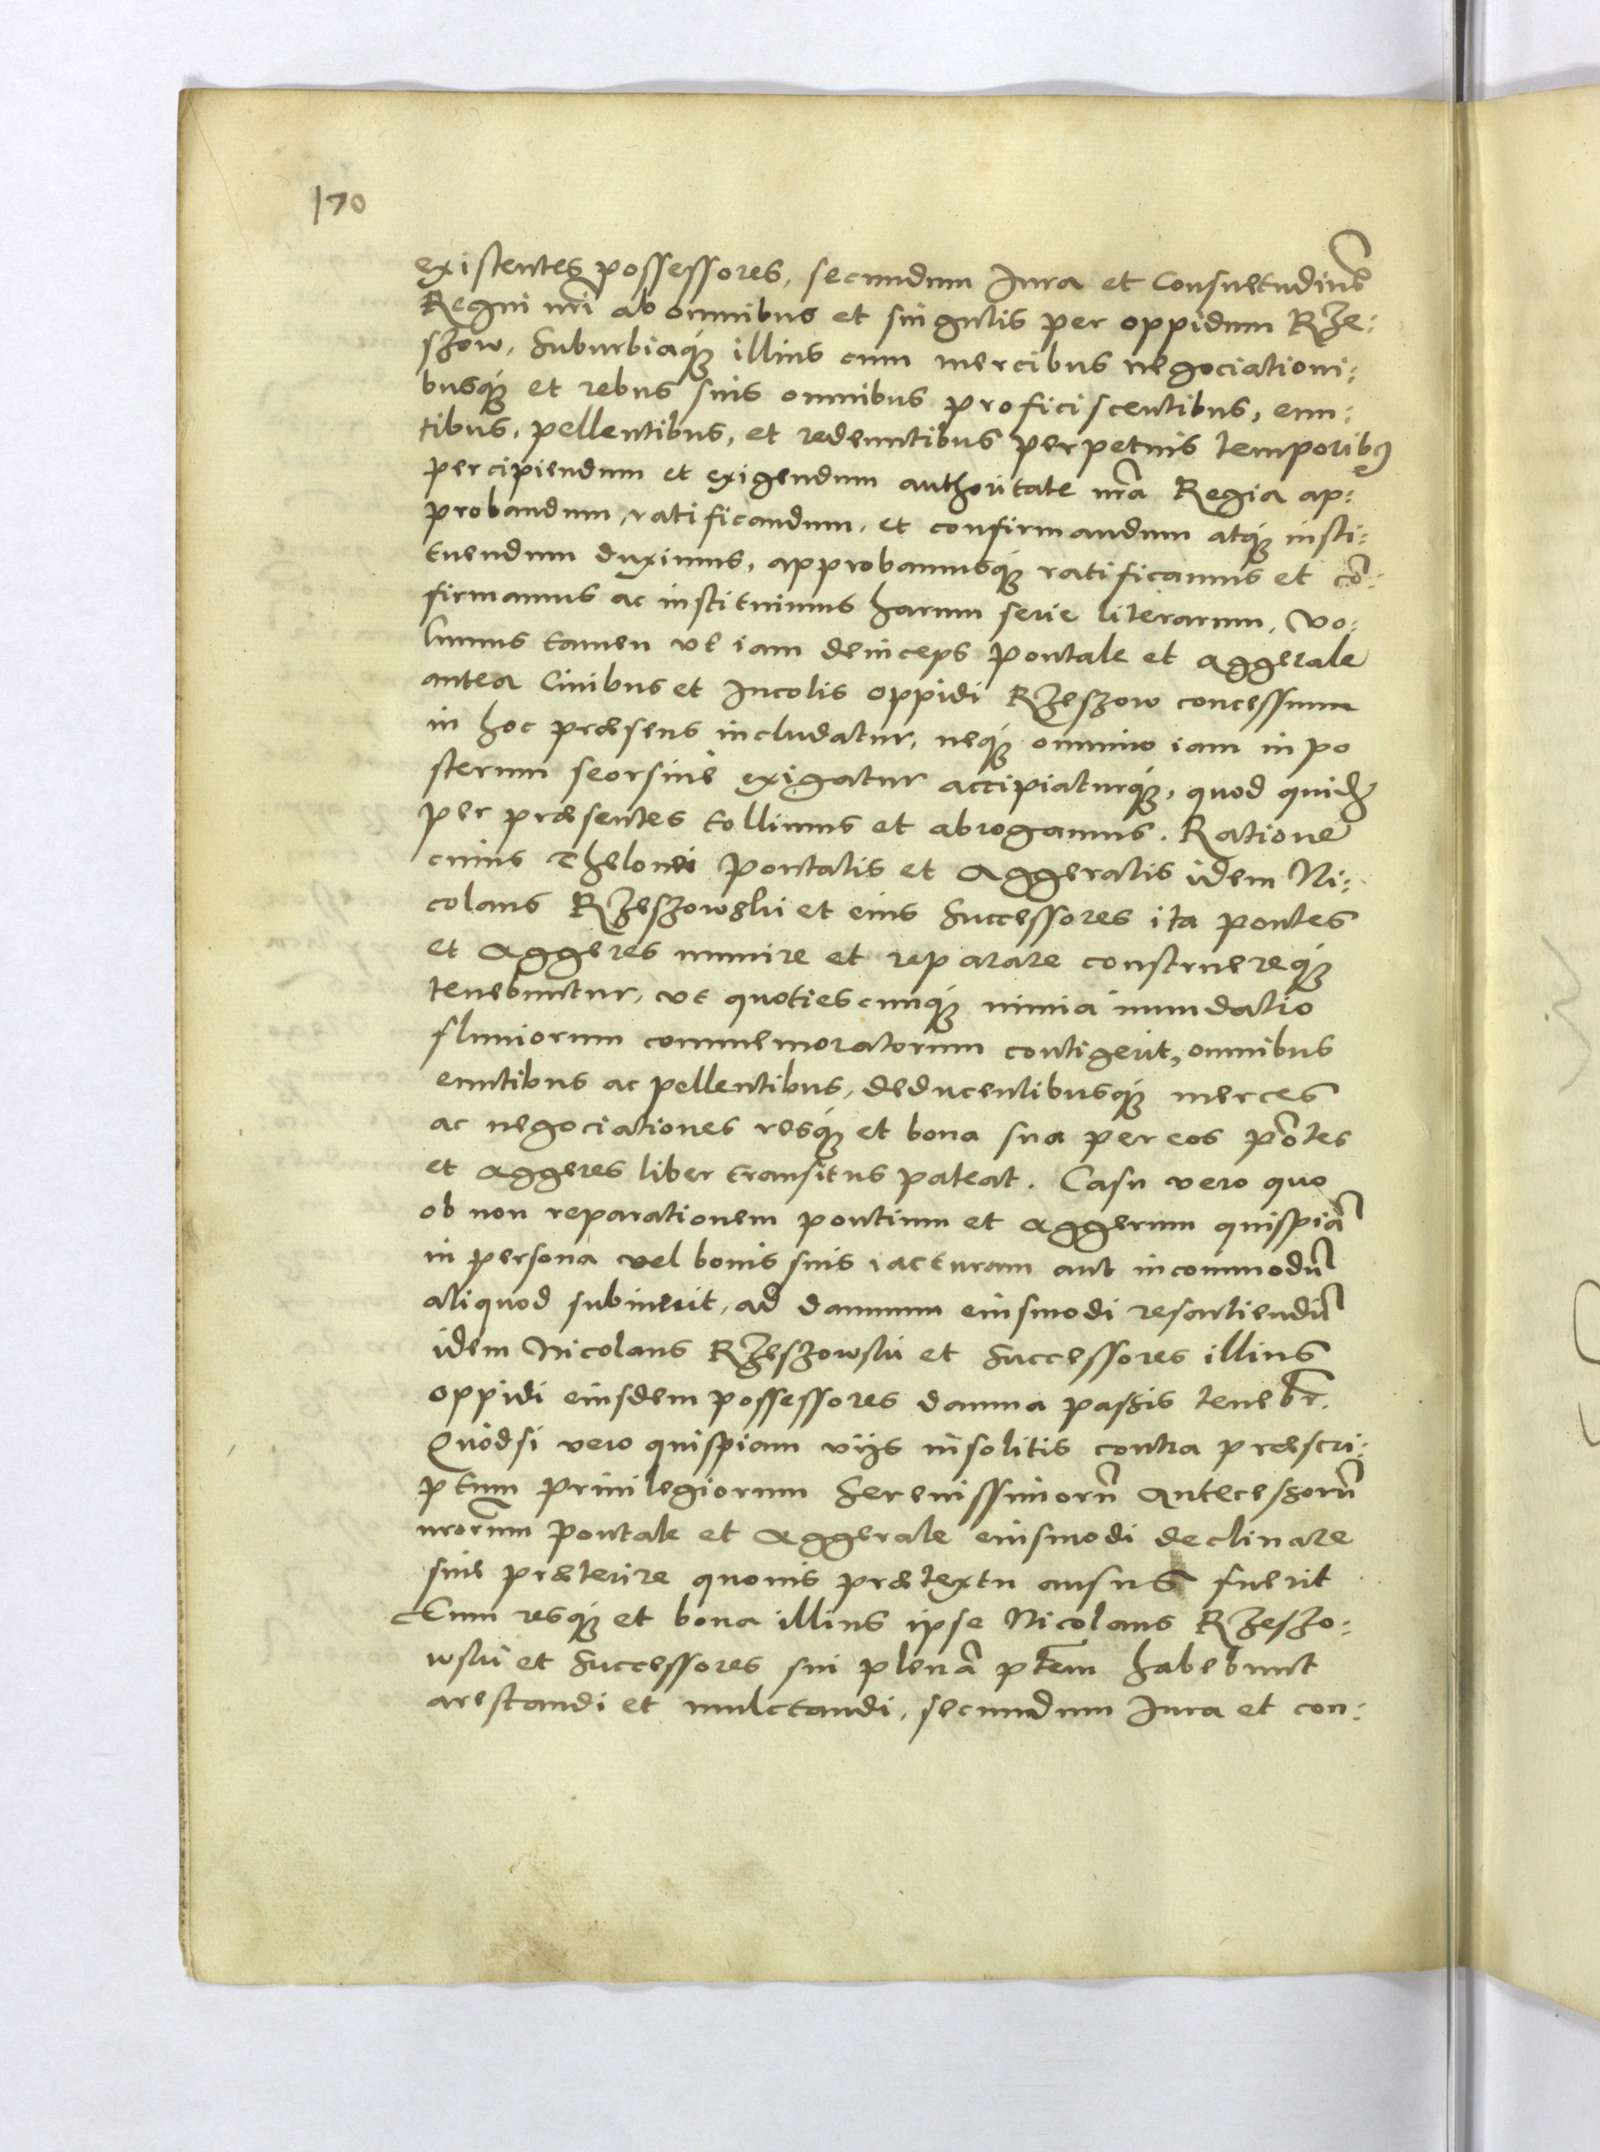 170
existentes possessores, secundum Jura et Consuetudine͂
Regni nr̃i ab omnibus et singulis per oppidum Rze:
szow, suburbiaqꝫ illius cum mercibus negociationi:
busqꝫ et rebus suis omnibus proficiscentibus, eun:
tibus, pellentibus, et redeuntibus perpetuis temporibꝰ
percipiendum et exigendum authoritate nr̃a Regia ap:
probandum, ratificandum, et confirmandum atqꝫ insti:
tuendum duximus, approbamusqꝫ ratificamus et cõ:
firmamus ac instituimus harum serie literarum, Vo:
lumus tamen ut iam deinceps pontale et aggerale
antea Civibus et Incolis oppidi Rzeszow concessum
in hoc præsens includatur, neqꝫ omnino iam in po
sterum seorsive exigatur accipiaturqꝫ, quod quidẽ
per præsentes tollimus et abrogamus. Ratione
cuius Thelonei pontalis et Aggeralis idem Ni:
colaus Rzeszowski et eius Successores ita pontes
et Aggeres munire et reparare construereqꝫ
tenebuntur, ut quotiescunqꝫ nimia inundatio
fluviorum commemoratorum contigerit, omnibus
euntibus ac pellentibus, deducentibusqꝫ merces
ac negociationes resqꝫ et bona sua per eos põtes
et Aggeres liber transitus pateat. Casu vero quo
ob non reparationem pontium et Aggerum quispiã
in persona vel bonis suis iacturam aut incommodũ
aliquod subiverit, ad damnum eiusmodi resartiendũ
idem Nicolaus Rzeszowski et Successores illius
oppidi eiusdem possessores damna passis tenebr̃.
Quodsi vero quispiam viis insolitis contra præscri:
ptum privilegiorum Serenissimorũ Antecessorũ
nr̃orum pontale et Aggerale eiusmodi declinare
sive præterire quovis prætextu ausus fuerit
Eum resqꝫ et bona illius ipse Nicolaus Rzeszo:
wski et Successores sui plenã ptẽm habebunt
arestandi et mulctandi, secundum Jura et con: